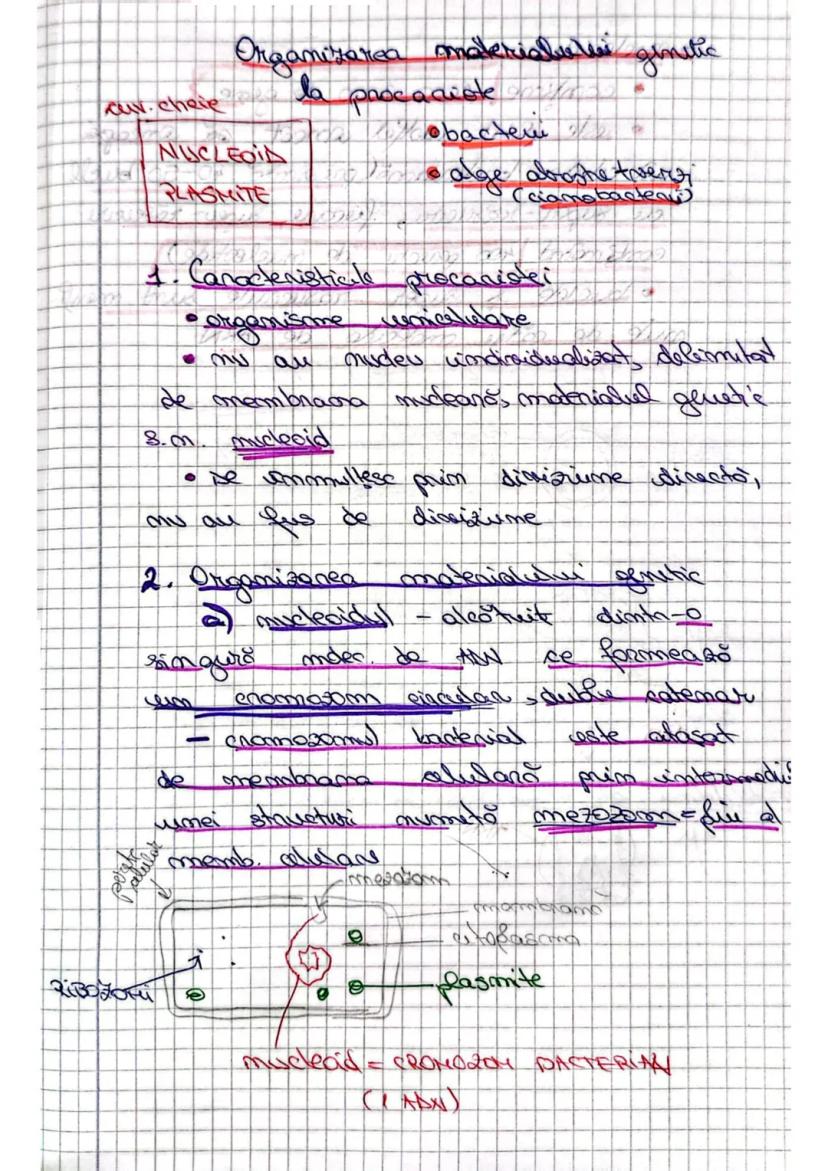 Organizarea materialului genetic
la procariote
cuv. cheie
NUCLEOID
PLASMITE
• bacterii
• alge albastre-verzi
(cianobacterii)
1. Caracteristicile procariotei
• organisme unicelulare
• nu au nucleu individualizat, delimitat
de membrana nucleară, materialul genetic
s.n. nucleoid
• se înmulțesc prin diviziune directă,
nu au fus de diviziune
2. Organizarea materialului genetic
a) nucleoidul - alcătuit dintr-o
singură molec. de ADN ce formează
un cromozom circular, dublu catenar
- cromozomul bacterian este atașat
de membrana celulară prin intermediu
unei structuri numită mezozom = pliu al
memb. celulare
perete celular
mezozom
membrană
citoplasma
RIBOZOMI
plasmite
nucleoid = CROMOZOM BACTERIAN
(1 ADN)